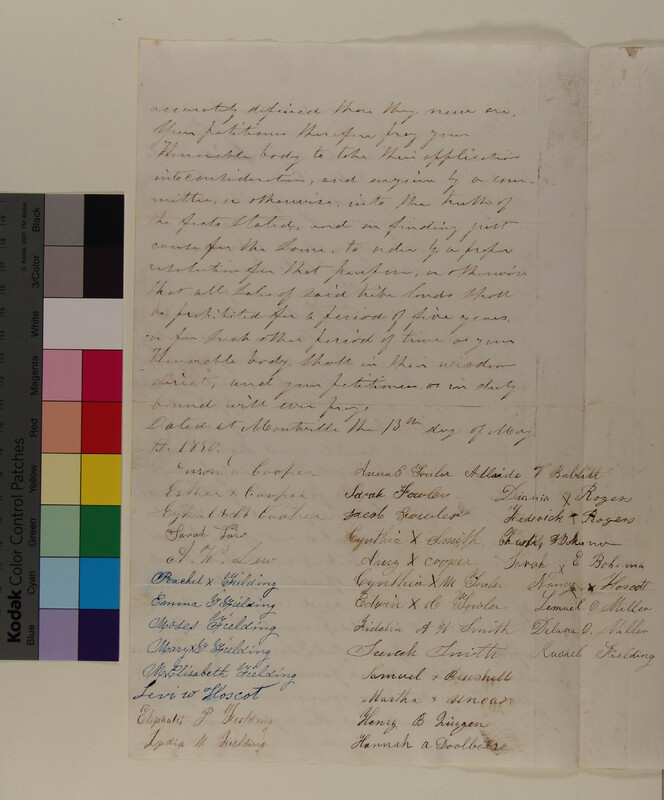 accurately defined than they now are.
Your petitioners therefore pray your
Honorable body to take their application
into consideration, and enquire by a com-
mittee, or otherwise, into the truth of
the facts stated, and on finding just
cause for the same, to order by a proper
resolution for that purpose, or otherwise
that all sales of said tribe lands shall
be prohibited for a period of five years
or for such other period of time as your
Honorable body shall in their wisdom
direct, and your petitioners as in duty
bound will ever pray.
Dated at Montville the 13th day of May
Cooper
Esther x Cooper
Cooper
Sarah
Rachel x Fielding
Emma F Fielding
Moses Fielding
Mary x Fielding
Elisabeth Fielding
Levi W Hoscot
Eliphalet Fielding
Lydia Fielding
Anna E Fowler
Sarah Fowler
Jacob Fowler
Cynthia x Smith
x Cooper
Cynthia x M
Edwin x C Fowler
Fidelia A H Smith
Smith
Samuel x Bushnell
Martha x uncas
Henry B
Hannah a Doolbear
Adlaide T Babbitt
Diania x Rogers
Fedrick x Rogers
Sarah x E Bohema
Nancy x Hoscott
Lemuel O Miller
Delana O. Miller
Rachel Fielding
Kodak Color Control Patches
Blue
Cyan
Green
Yellow
Red
Magenta
White
3/Color
Black